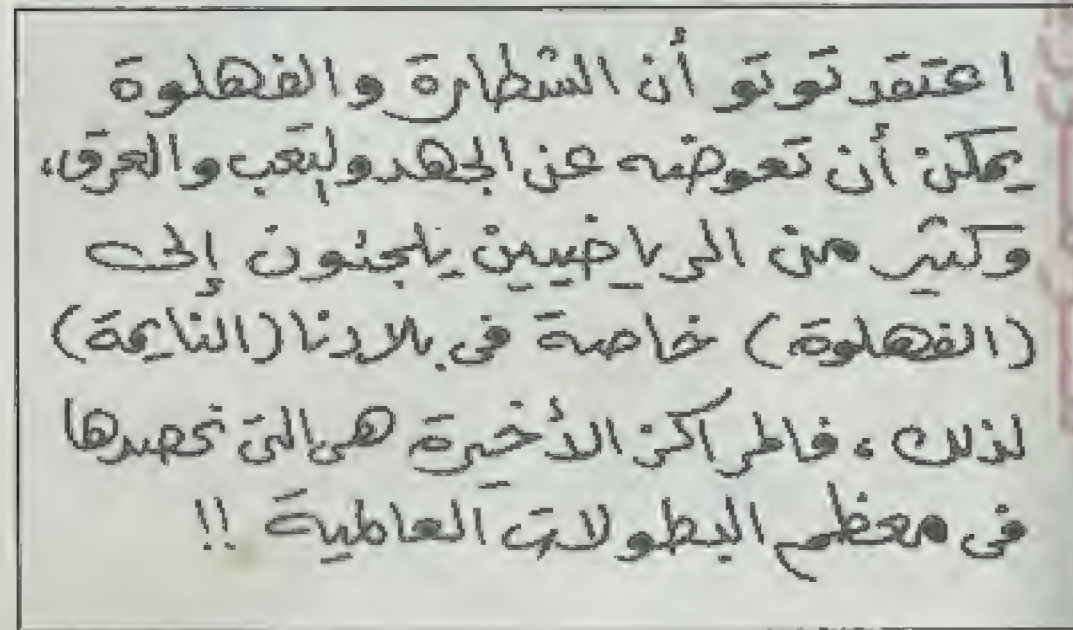 اعتقد توتو أن الشطارة والفهلوة
يمكن أن تعوضه عن الجهد والتعب والعرق،
وكثير من الرياضيين يلجئون إلى
(الفهلوة) خاصة في بلادنا (النايمة)
لذلك، فالمراكز الأخيرة هي التي نحصدها
في معظم البطولات العالمية !!